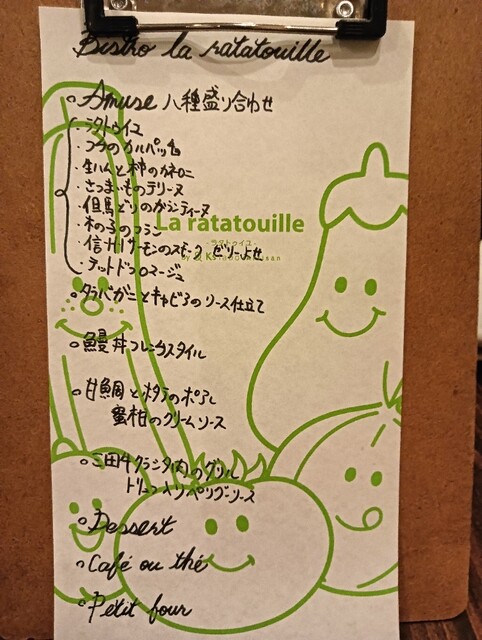 Bistro la ratatouille
Amuse 八種盛り合わせ
・ラタトゥイユ
・フグのカルパッチョ
・生ハムと柿のカネロニ
・さつまいものテリーヌ
・但馬どりのガランティーヌ
・木の子のフラン
・信州サーモンのスモーク ゼリーよせ
・テットドフロマージュ
La ratatouille
ラタトゥイユ
タラバガニとキャビアのリース仕立て
鰻丼フレンチスタイル
甘鯛とホタテのポアレ
蜜柑のクリームソース
三田牛クラシタ肉のグリル
トリュフ入りペリグーソース
Dessert
Café ou thé
Petit four